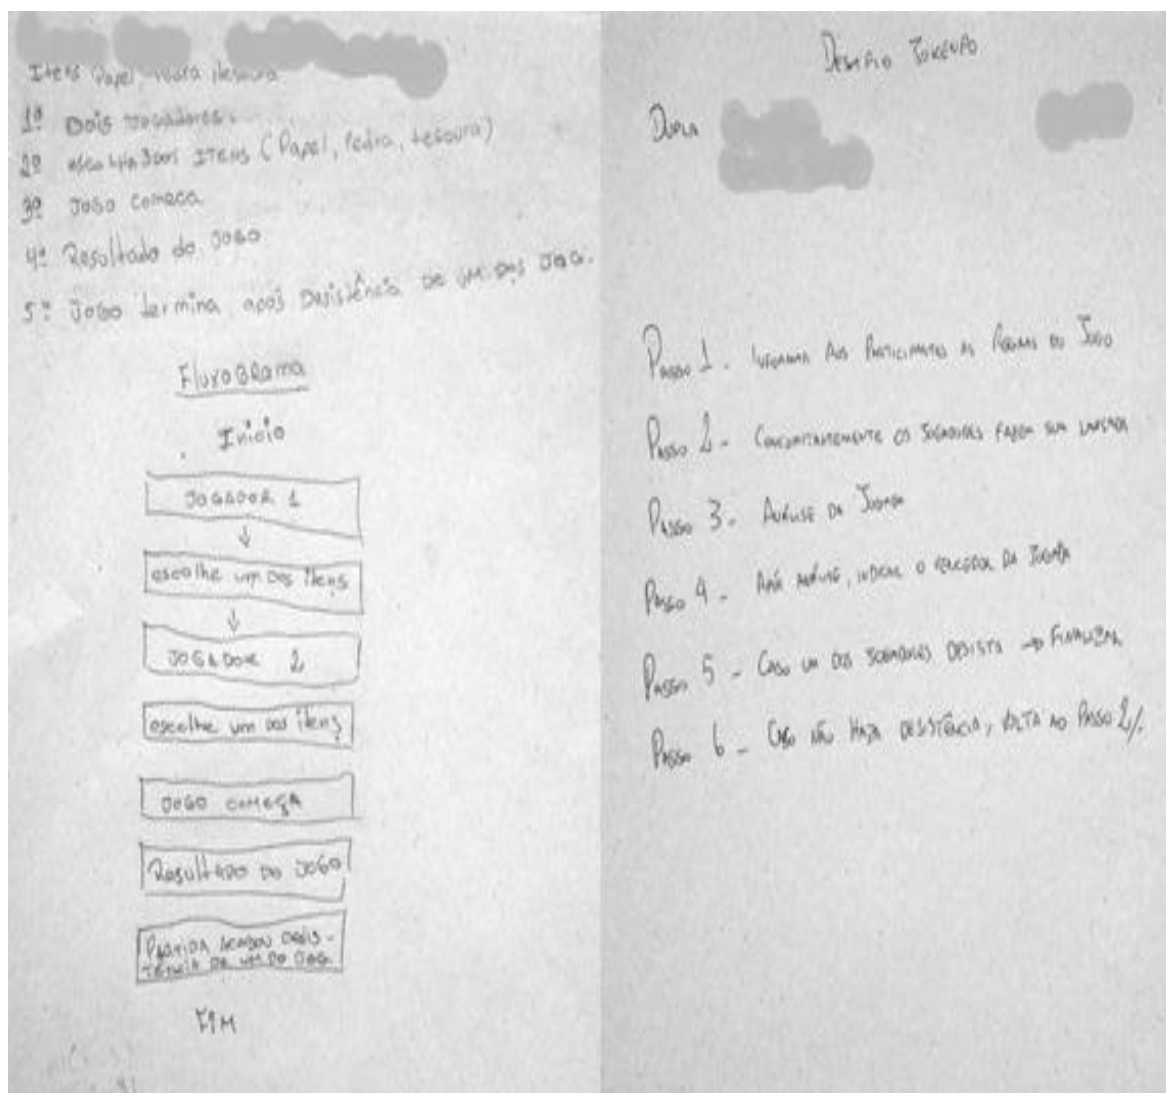 Itens Papel, pedra, tesoura
1º Dois Jogadores.
2º escolha dos ITENS (Papel, Pedra, tesoura)
3º Jogo começa
4º Resultado do Jogo
5º Jogo termina após Desistência de um dos Jog.
Fluxograma
Início
JOGADOR 1
escolhe um dos itens
JOGADOR 2
escolhe um dos itens
JOGO COMEÇA
Resultado do Jogo
Partida acabou desis-
tência de um do Jog.
FIM
Desafio Jokenpo
Dupla
Passo 1 - Informar Aos Participantes as Regras do Jogo
Passo 2 - Concomitantemente os Jogadores fazem sua
Passo 3 - Análise da Jogada
Passo 4 - Após análise, indicar o vencedor da Jogada
Passo 5 - Caso um dos Jogadores desista → Finalizar
Passo 6 - Caso não Haja desistência, volta ao Passo 2/.